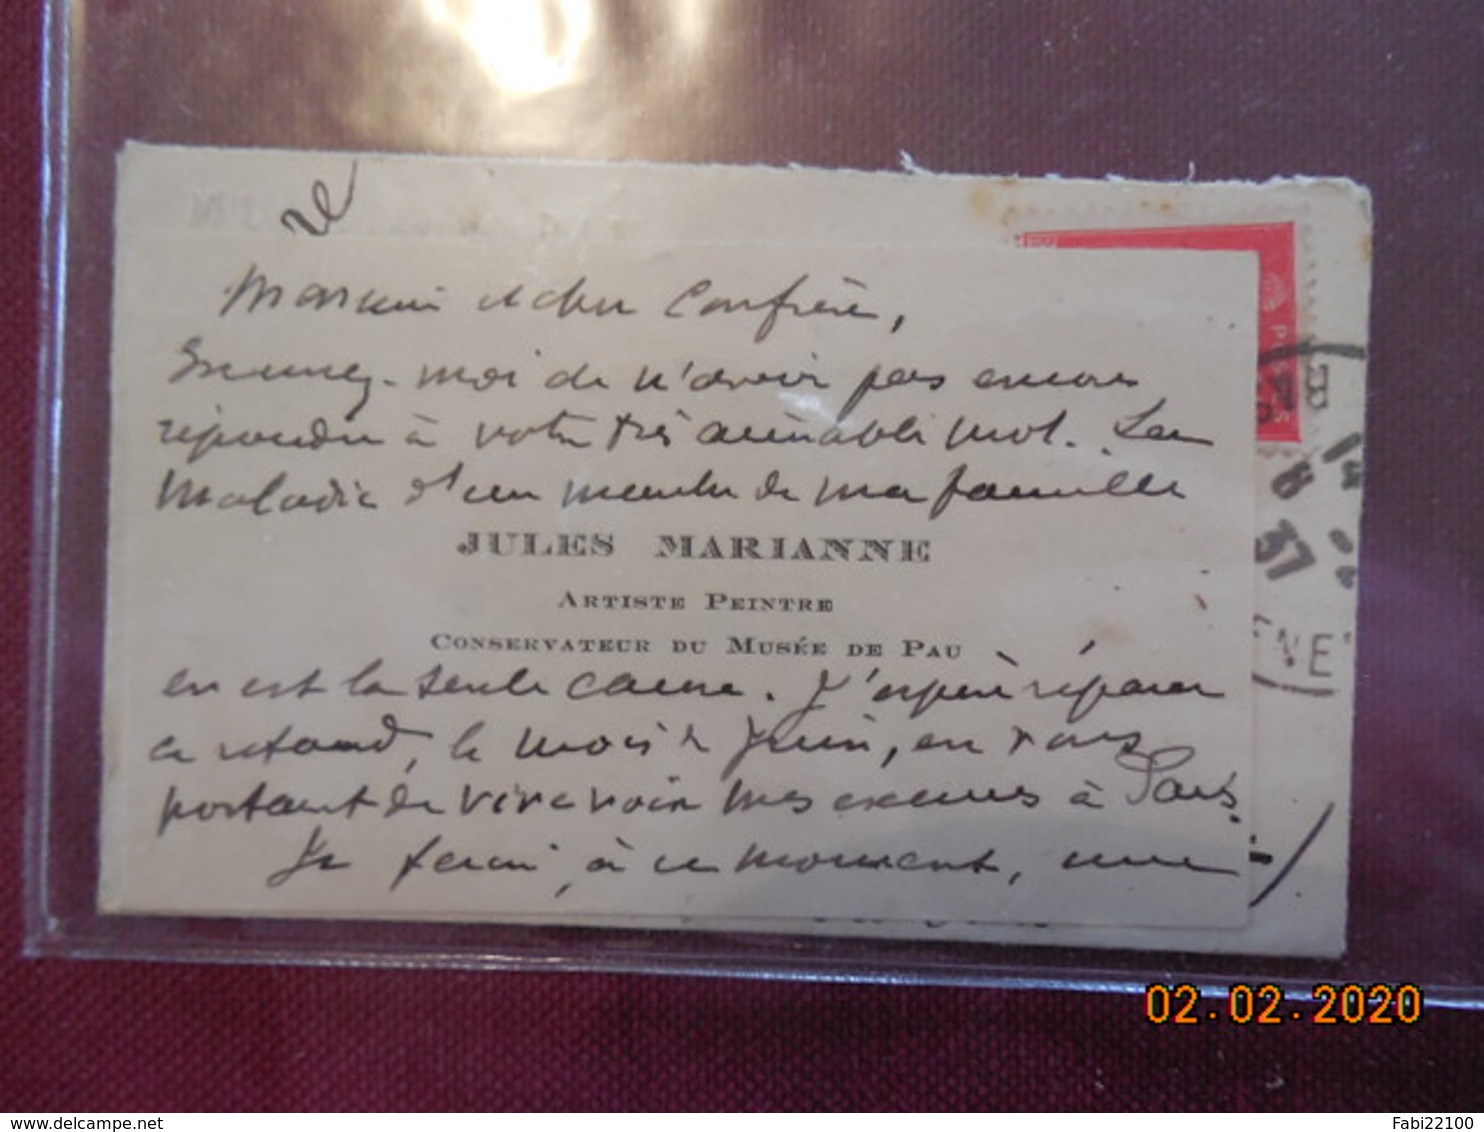 Monsieur et cher Confrère,
Excusez-moi de n'avoir pas encore
répondu à votre très aimable mot. La
maladie d'un membre de ma famille
JULES MARIANNE
ARTISTE PEINTRE
CONSERVATEUR DU MUSÉE DE PAU
en est la seule cause. J'espère réparer
ce retard, le mois de Juin, en vous
portant de vive voix mes excuses à Paris.
Je ferai, à ce moment, une
POSTES
37
02.02.2020
www.delcampe.net
Fabi22100